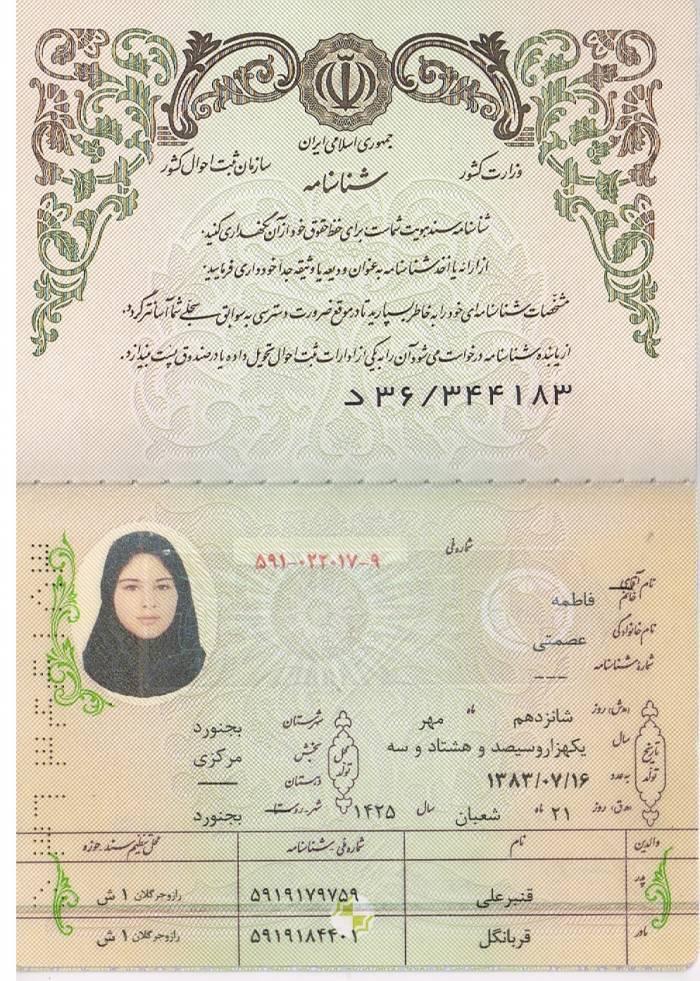 جمهوری اسلامی ایران
وزارت کشور
سازمان ثبت احوال کشور
شناسنامه
شناسنامه سند هویت شماست برای حفظ حقوق خود از آن نگهداری کنید.
از ارائه یا اخذ شناسنامه به عنوان ودیعه یا وثیقه جداً خودداری فرمایید.
مشخّصات شناسنامه‌ای خود را به خاطر بسپارید تا در موقع ضرورت دسترسی به سوابق سجلّی شما آسانتر گردد.
از یابنده شناسنامه درخواست می‌شود آن را به یکی از ادارات ثبت احوال تحویل داده یا در صندوق پست بیندازد.
د ۳۶/۳۴۴۱۸۳
شماره ملی ۵۹۱-۰۲۲۰۱۷-۹
نام آقای خانم فاطمه
نام خانوادگی عصمتی
شماره شناسنامه ---
تاریخ تولد
(ه‍.ش) روز شانزدهم ماه مهر
سال یکهزاروسیصد و هشتاد و سه
به عدد ۱۳۸۳/۰۷/۱۶
(ه‍.ق) روز ۲۱ ماه شعبان سال ۱۴۲۵
محل تولد
شهرستان بجنورد
بخش مرکزی
دهستان ---
شهر-روستا بجنورد
والدین نام شماره ملی - شناسنامه محل تنظیم سند - حوزه
پدر قنبرعلی ۵۹۱۹۱۷۹۷۵۹ رازوجرگلان ۱ ش
مادر قربانگل ۵۹۱۹۱۸۴۴۰۱ رازوجرگلان ۱ ش